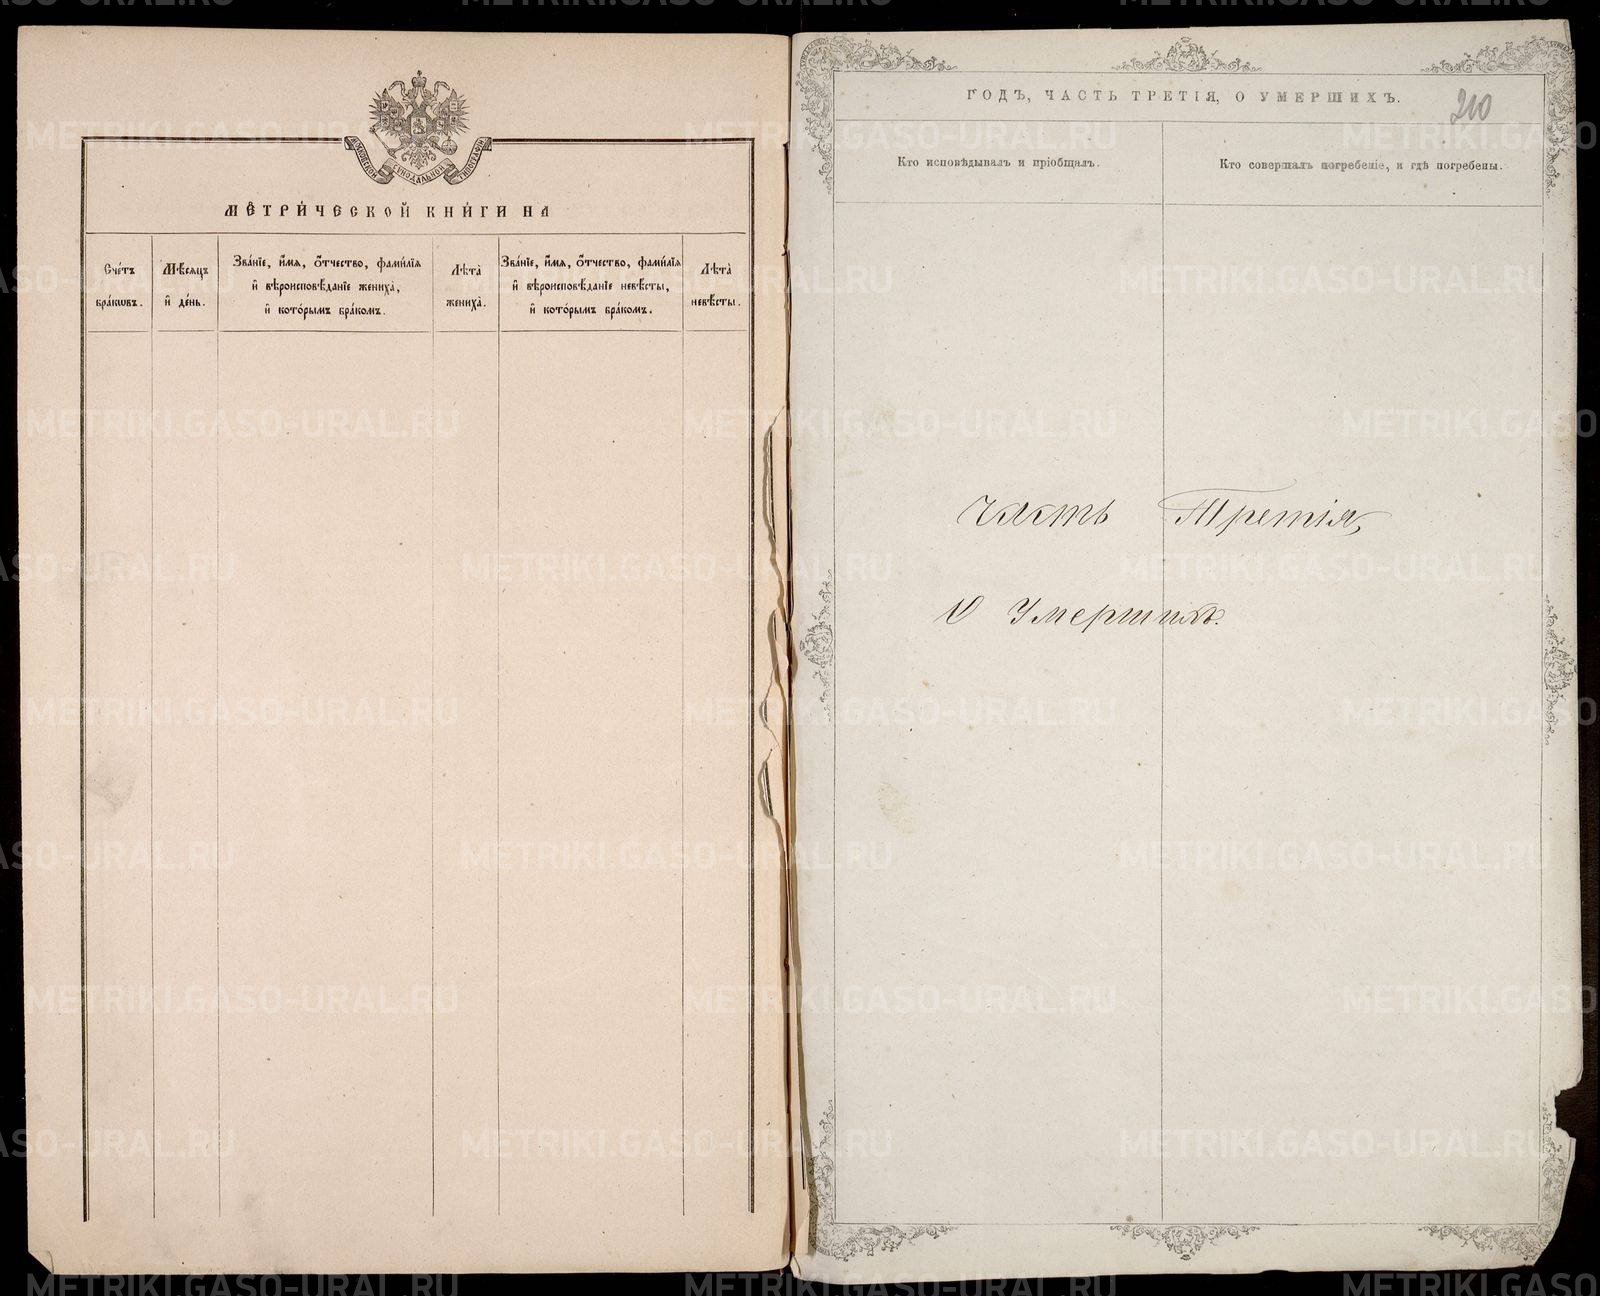 МОСКОВСКОЙ СѴНОДАЛЬНОЙ ТИПОГРАФІИ
МЕТРИ́ЧЕСКОЙ КНИ́ГИ НА
Сче́тъ
бра́кѡвъ.
Мѣ́сяцъ
и҆ де́нь.
Зва́нїе, и҆́мѧ, ѻ҆́тчество, фамѝлїѧ
и҆ вѣроисповѣ́данїе женихà,
и҆ кото́рымъ бра́комъ.
Лѣ́та
женихà.
Зва́нїе, и҆́мѧ, ѻ҆́тчество, фамѝлїѧ
и҆ вѣроисповѣ́данїе невѣ́сты,
и҆ кото́рымъ бра́комъ.
Лѣ́та
невѣ́сты.
ГОДЪ, ЧАСТЬ ТРЕТІЯ, О УМЕРШИХЪ.
210
Кто исповѣдывалъ и пріобщалъ.
Кто совершалъ погребеніе, и гдѣ погребены.
Часть Третія,
О Умершихъ.
METRIKI.GASO-URAL.RU